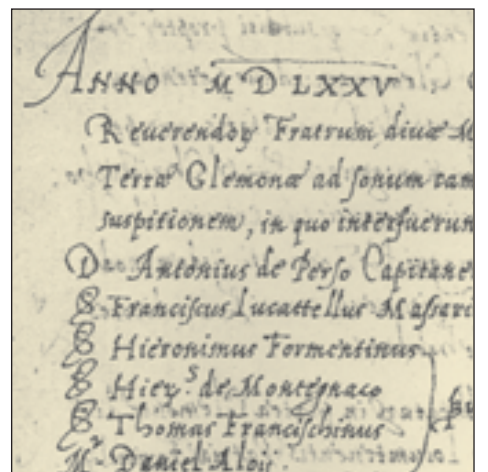 ANNO MDLXXV
Reuerendoꝝ Fratrum diuæ M
Terræ Glemonæ ad sonum cam
suspitionem, in quo interfuerun
D Antonius de Perso Capitane
S Franciscus Lucattellus Massari
S Hieronimus Formentinus
S Hier.s de Montegnaco
S Thomas Francischinus
M.o Daniel Aloij